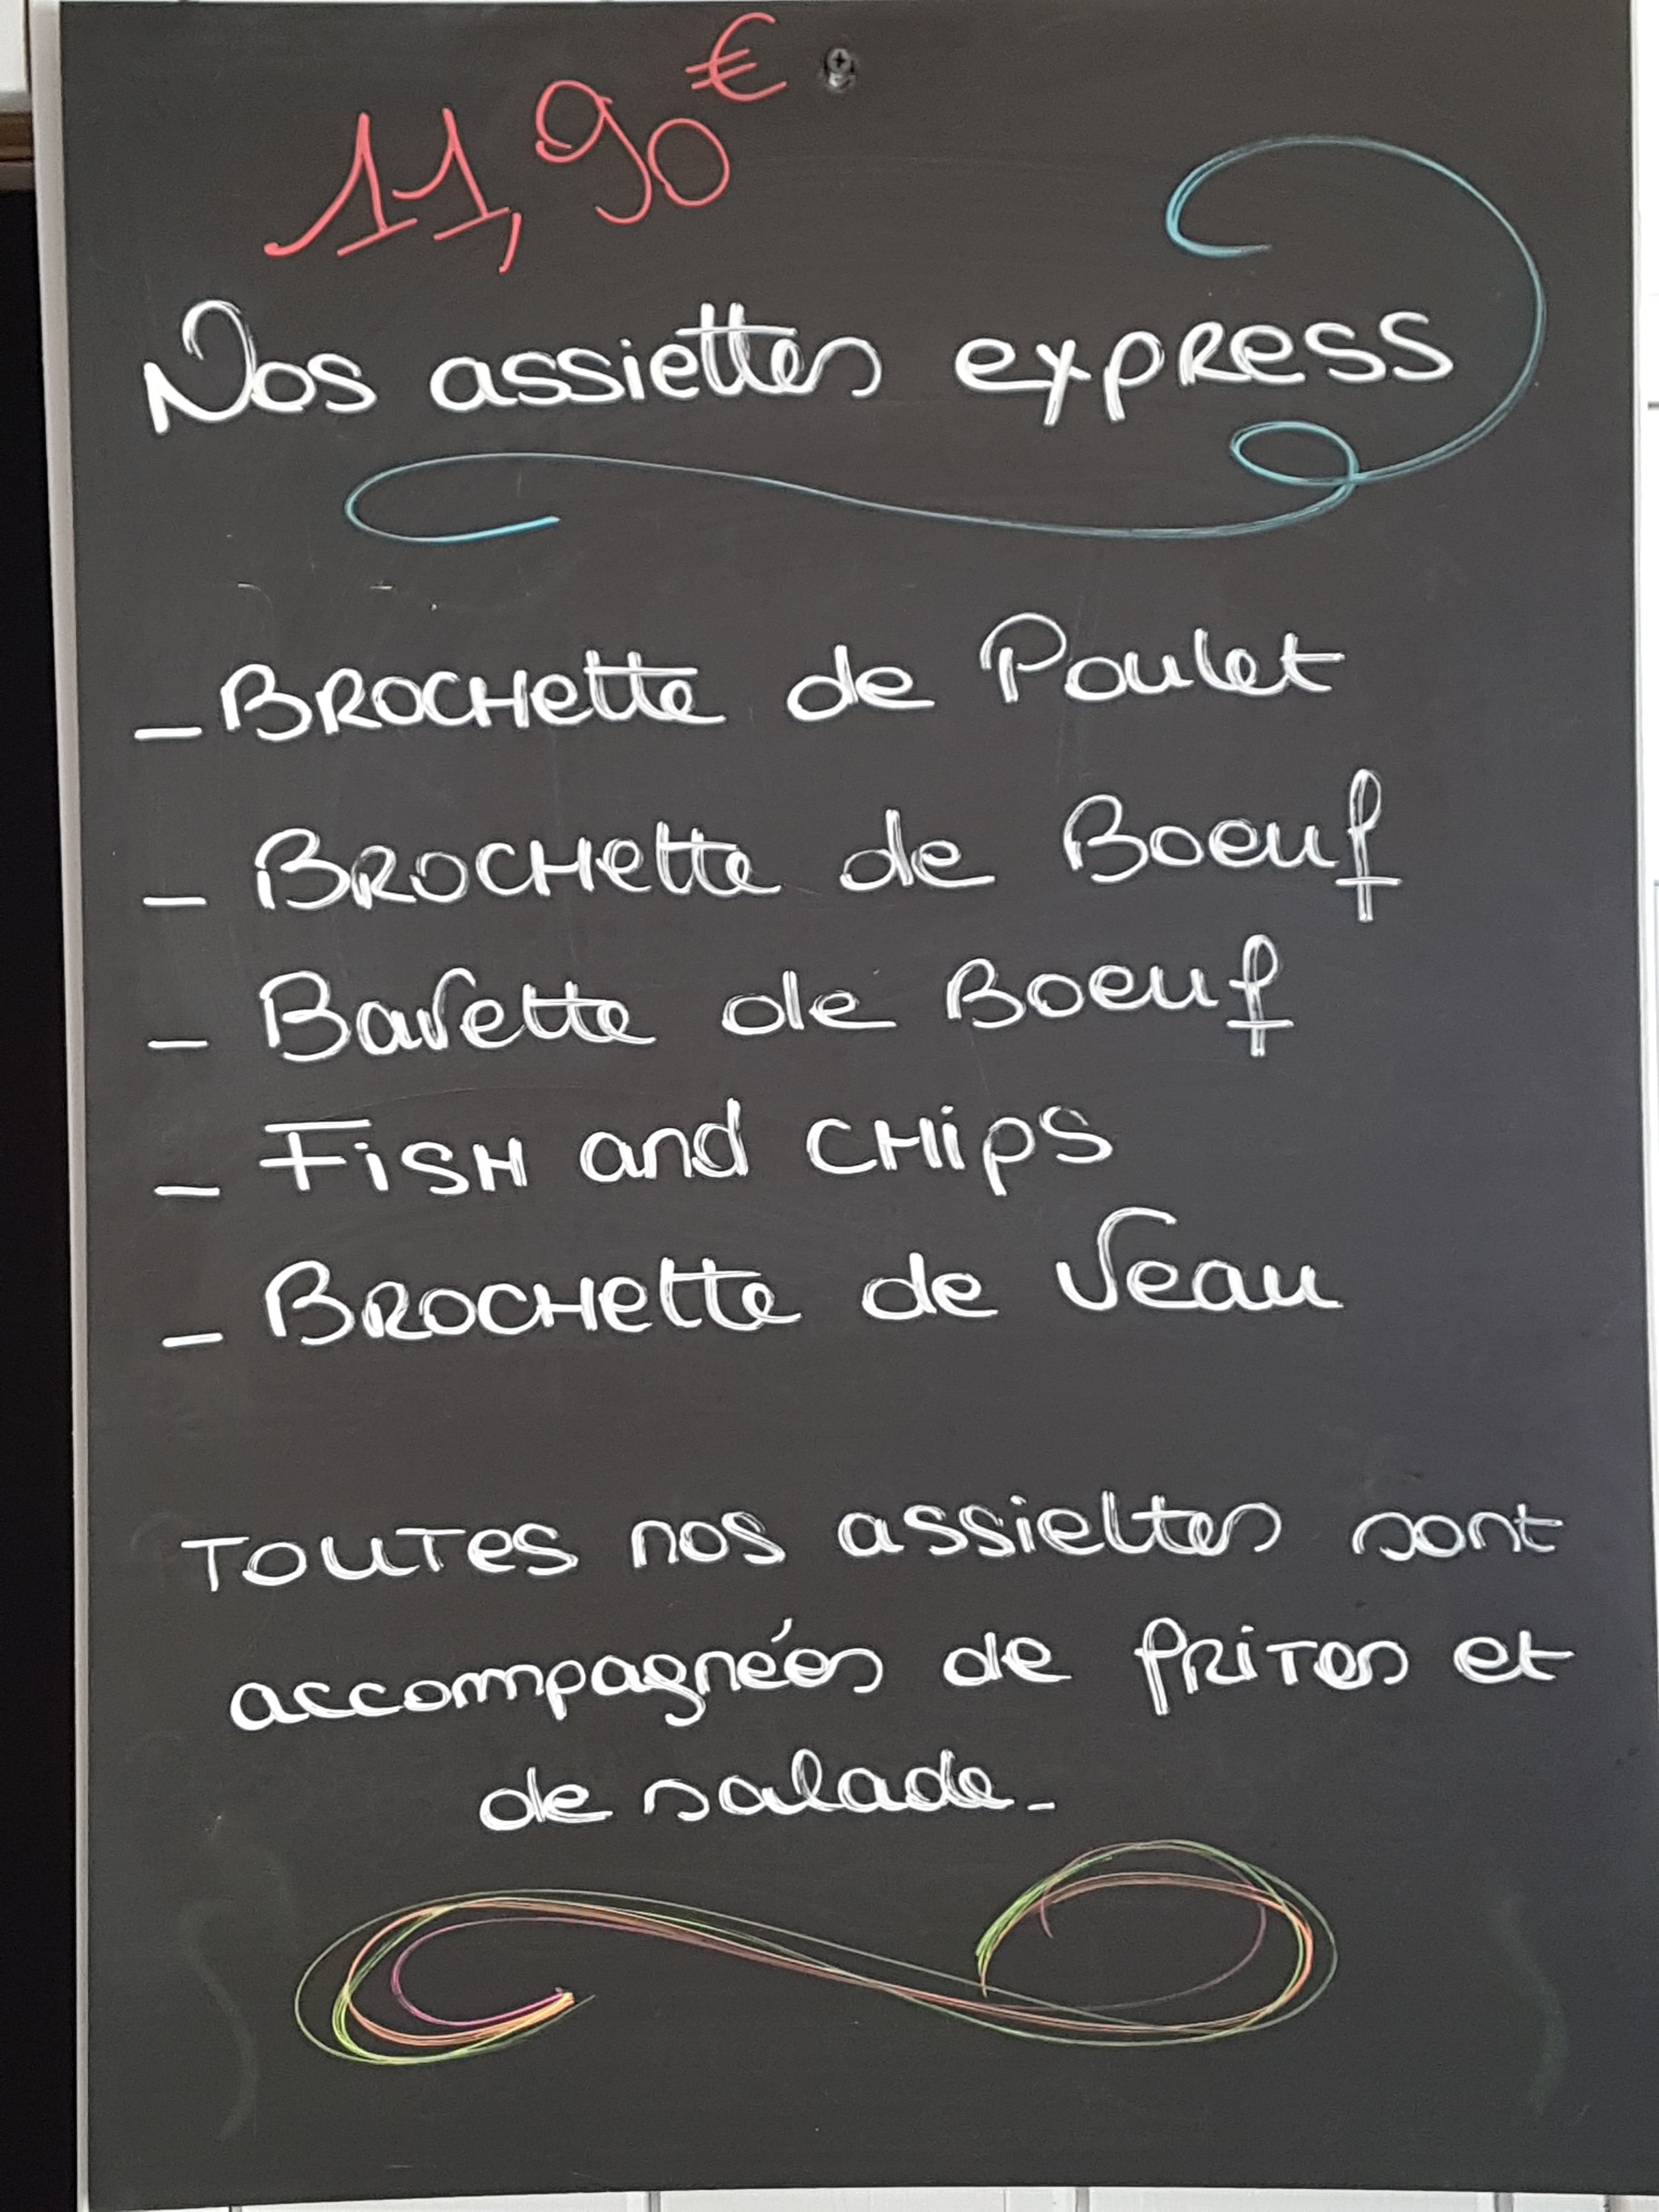 11,90€
Nos assiettes express
- Brochette de Poulet
- Brochette de Boeuf
- Bavette de Boeuf
- Fish and chips
- Brochette de Veau
Toutes nos assiettes sont
accompagnées de frites et
de salade-